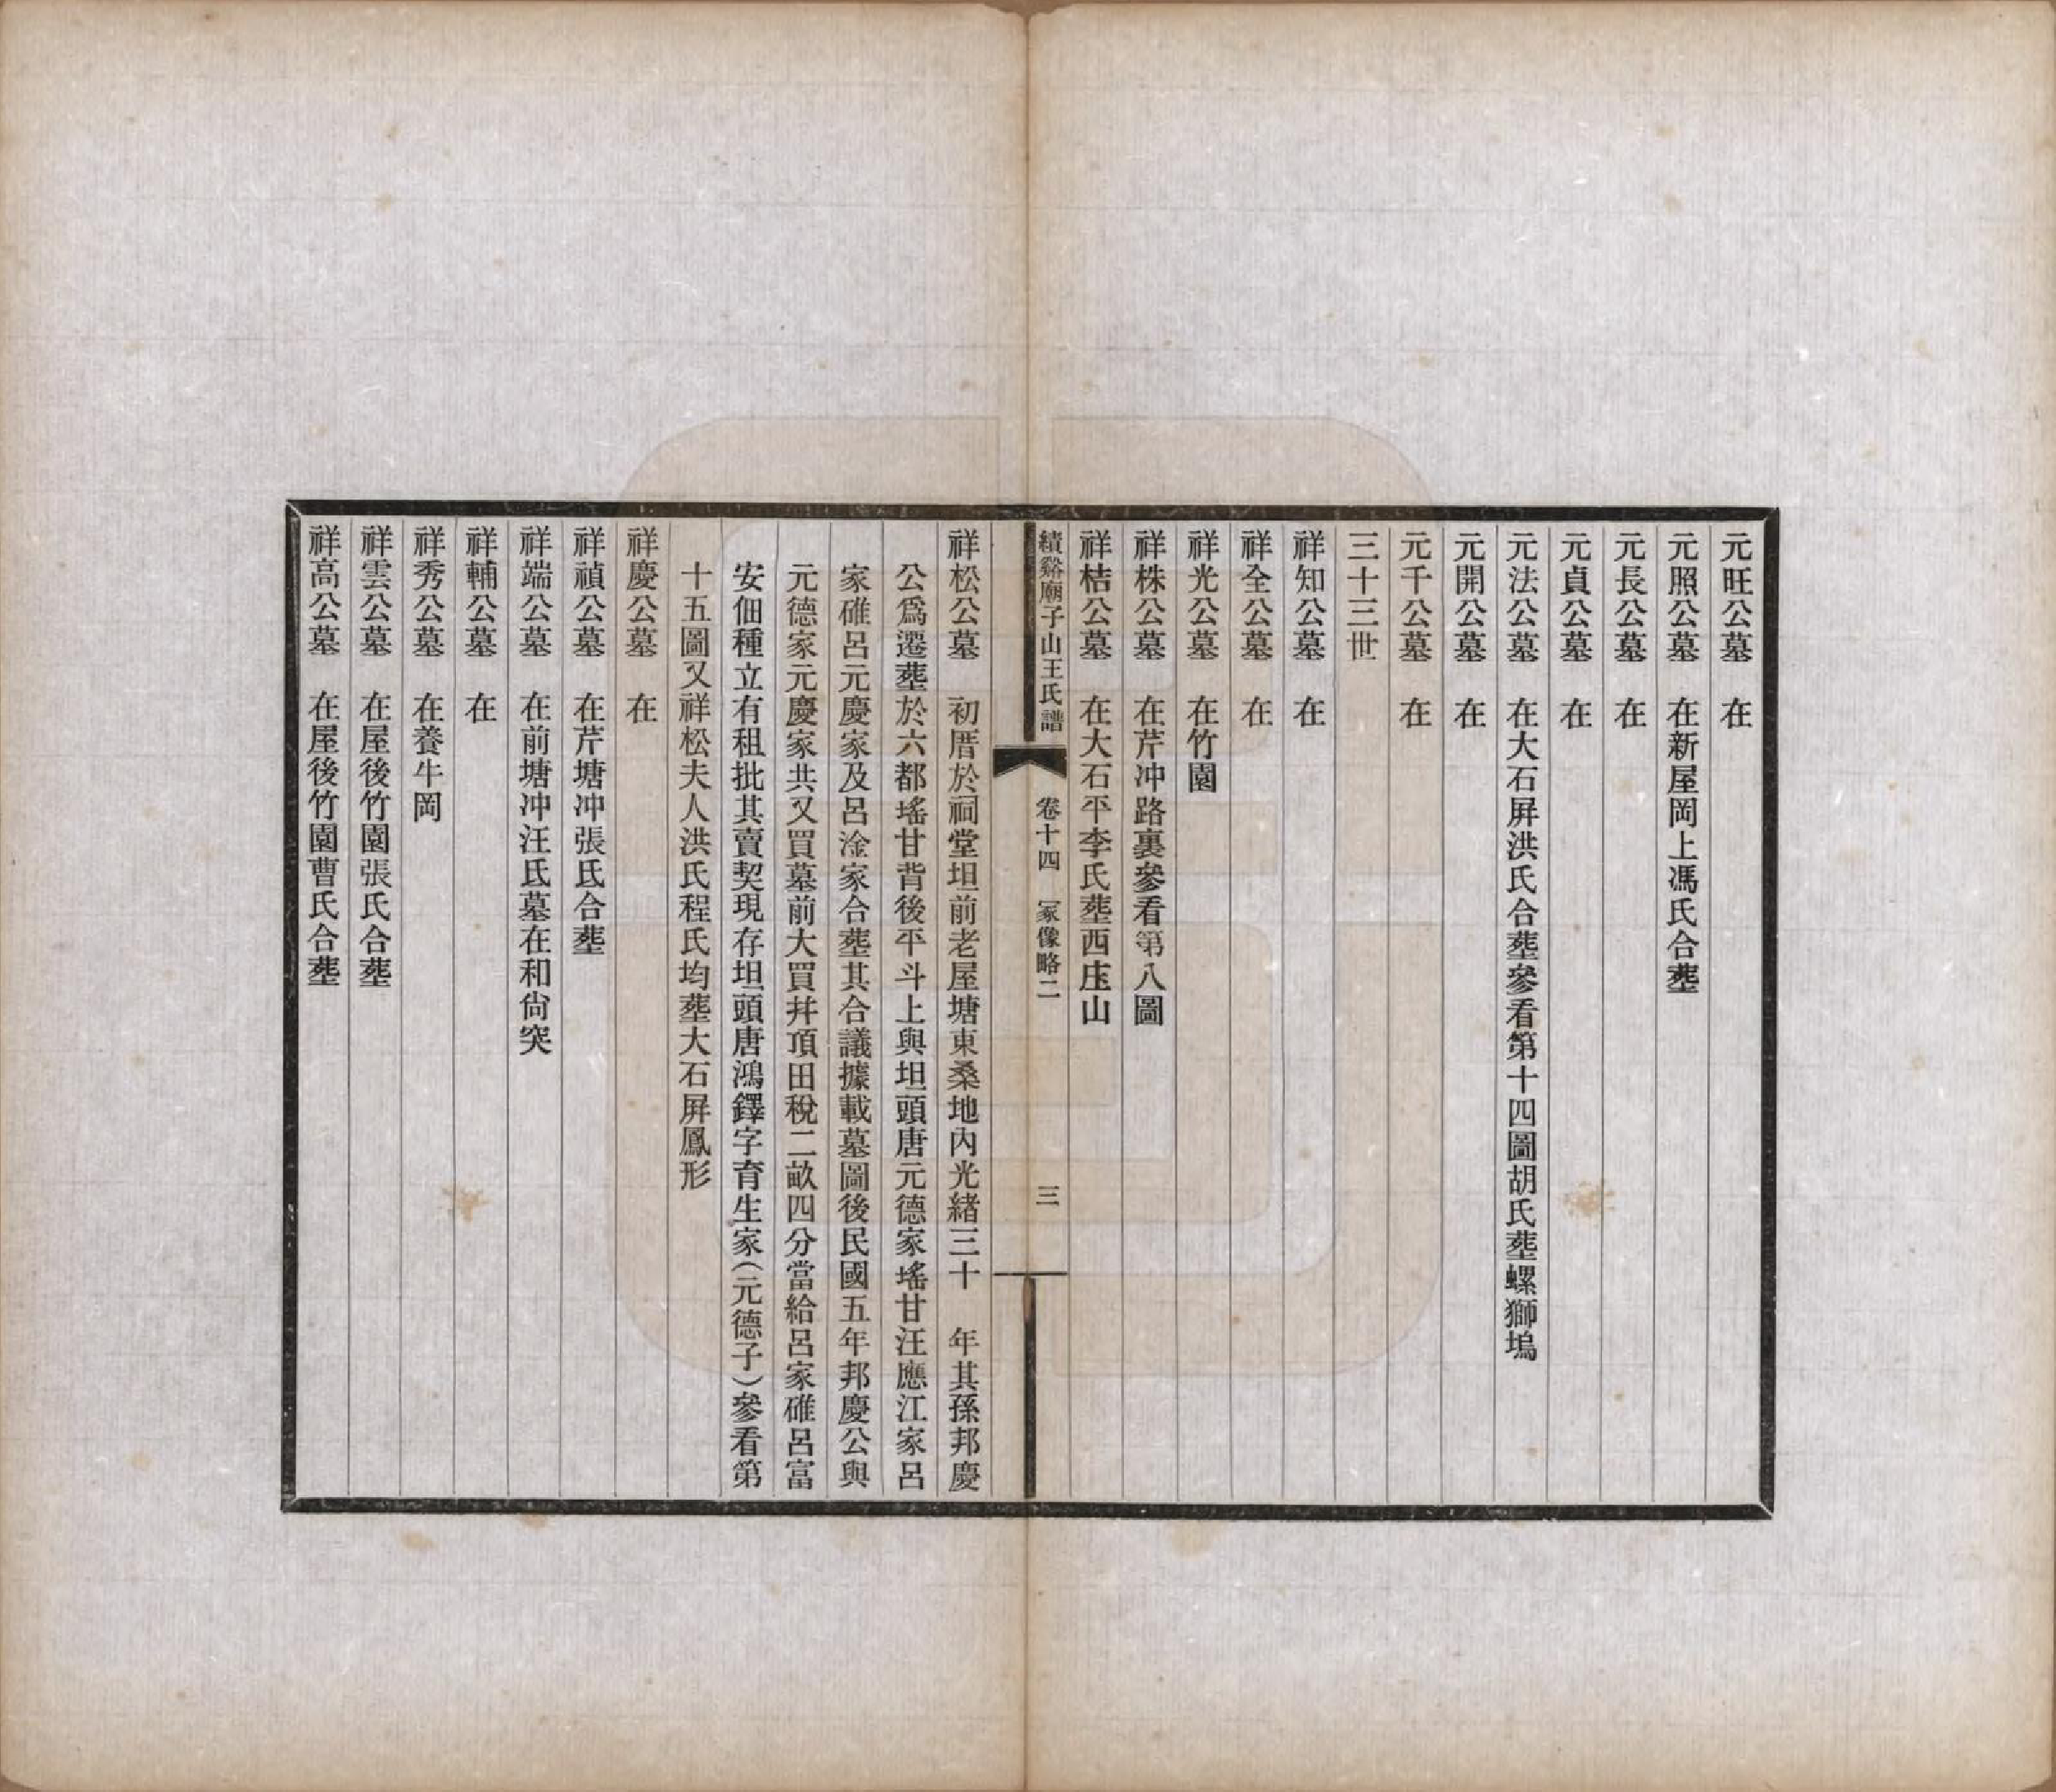 元旺公墓　在
元照公墓　在新屋岡上馮氏合塟
元長公墓　在
元貞公墓　在
元法公墓　在大石屏洪氏合塟參看第十四圖胡氏塟螺獅塢
元開公墓　在
元千公墓　在
三十三世
祥知公墓　在
祥全公墓　在
祥光公墓　在竹園
祥株公墓　在芹冲路裏參看第八圖
祥桔公墓　在大石平李氏塟西庒山
績谿廟子山王氏譜　卷十四　冢像略二　三
祥松公墓　初厝於祠堂坦前老屋塘東桑地內光緒三十　年其孫邦慶
公爲遷塟於六都瑤甘背後平斗上與坦頭唐元德家瑤甘汪應江家呂
家碓呂元慶家及呂淦家合塟其合議據載墓圖後民國五年邦慶公與
元德家元慶家共又買墓前大買幷頂田稅二畝四分當給呂家碓呂富
安佃種立有租批其賣契現存坦頭唐鴻鐸字育生家（元德子）參看第
十五圖又祥松夫人洪氏程氏均塟大石屏鳳形
祥慶公墓　在
祥禎公墓　在芹塘冲張氏合塟
祥端公墓　在前塘冲汪氏墓在和尙突
祥輔公墓　在
祥秀公墓　在養牛岡
祥雲公墓　在屋後竹園張氏合塟
祥高公墓　在屋後竹園曹氏合塟